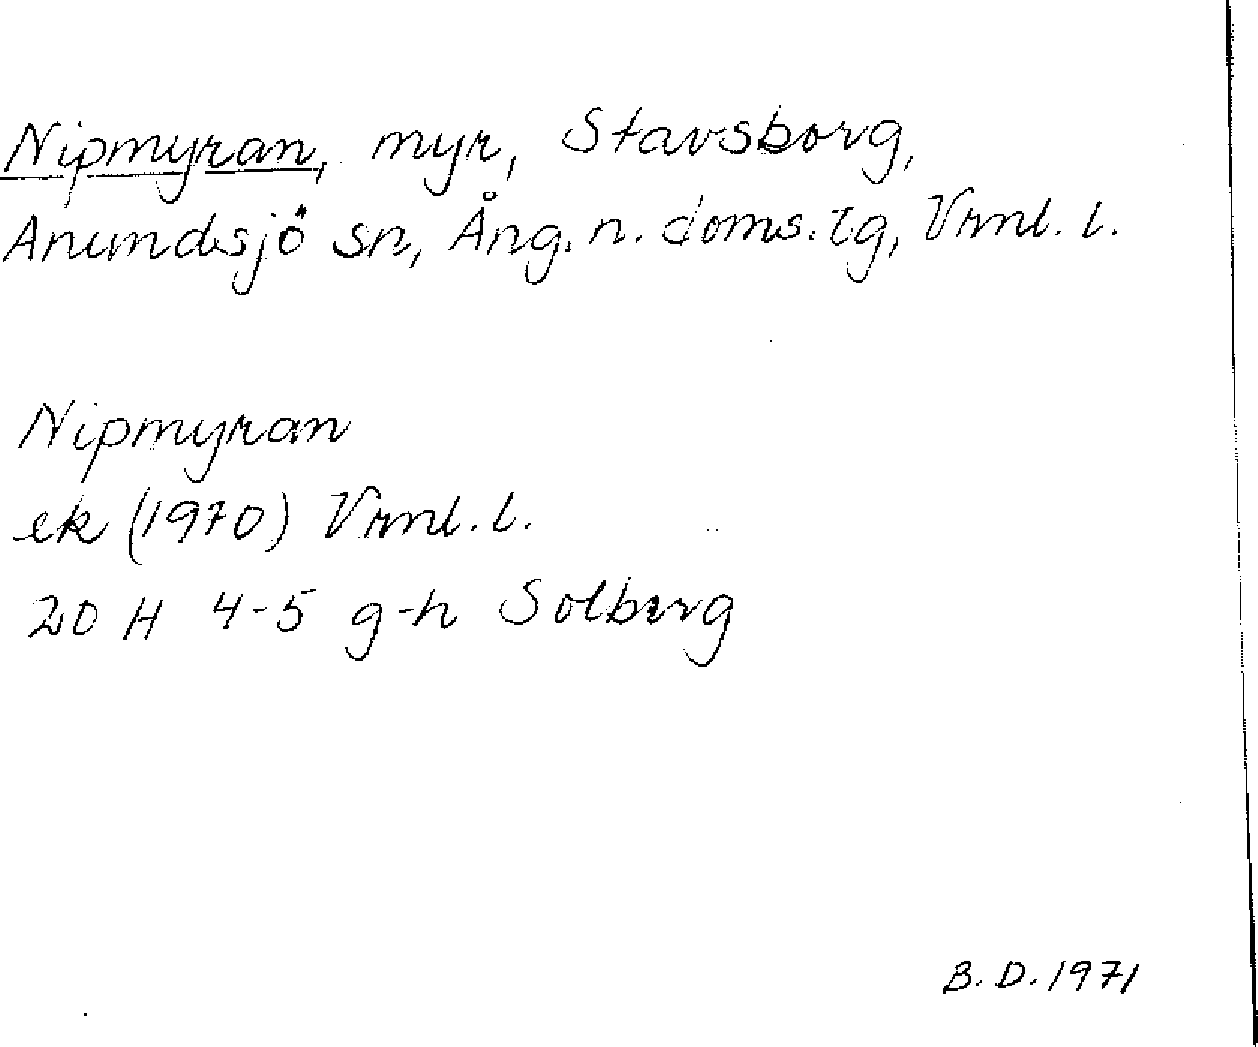 Nipmyran, myr, Stavsborg,
Anundsjö sn, Ång. n. doms. tg, Vrnl. l.
Nipmyran
ek (1970) Vrnl. l.
20 H 4-5 g-h Solberg
B. D. 1971